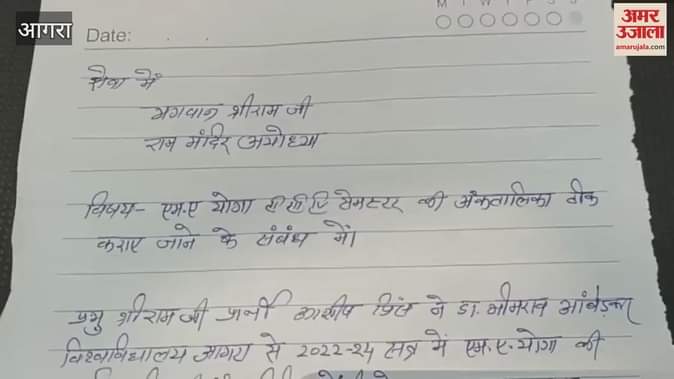 आगरा
M T W T F S S
अमर
उजाला
amarujala.com
Date:
सेवा में
भगवान श्रीराम जी
राम मंदिर अयोध्या
विषय- एम.ए योगा सेमेस्टर की अंकतालिका ठीक
कराए जाने के संबंध में।
प्रभु श्रीराम जी प्रार्थी सिंह ने डा. भीमराव आंबेडकर
विश्वविद्यालय आगरा से 2022-24 सत्र में एम.ए. योगा की